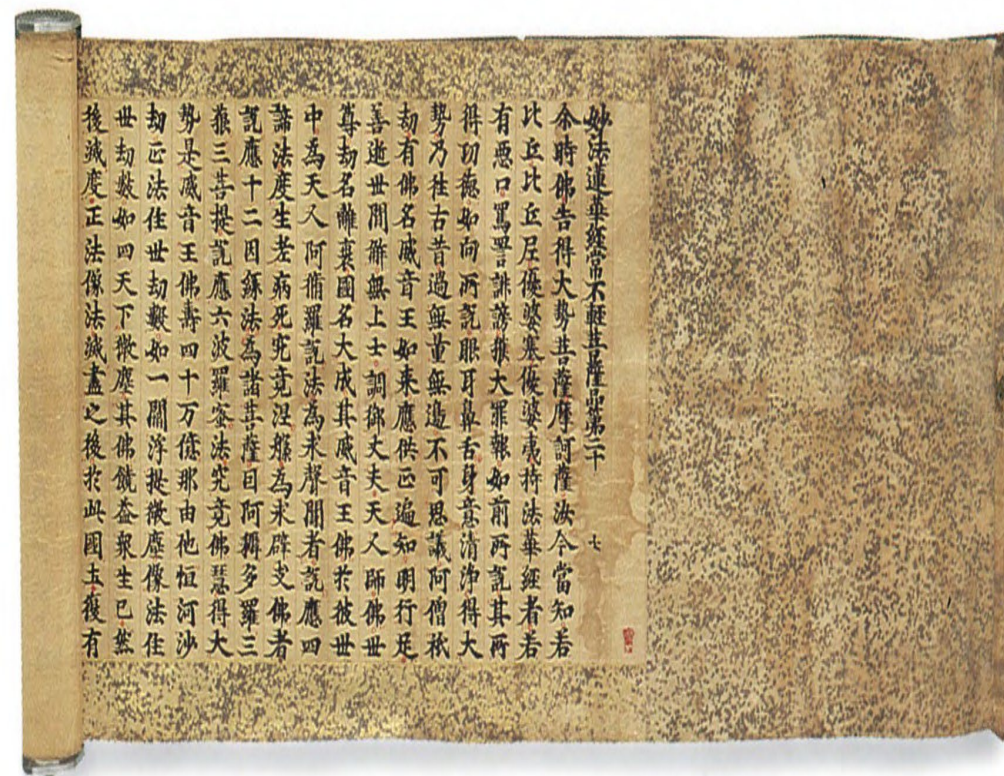 妙法蓮華經常不輕菩薩品第二十
七
尒時佛告得大勢菩薩摩訶薩汝今當知若
比丘比丘尼優婆塞優婆夷持法華經者若
有惡口罵詈誹謗獲大罪報如前所說其所
得功德如向所說眼耳鼻舌身意清淨得大
勢乃往古昔過無量無邊不可思議阿僧祇
劫有佛名威音王如来應供正遍知明行足
善逝世間解無上士調御丈夫天人師佛世
尊劫名離衰國名大成其威音王佛於彼世
中為天人阿脩羅說法為求聲聞者說應四
諦法度生老病死究竟涅槃為求辟支佛者
說應十二因緣法為諸菩薩因阿耨多羅三
藐三菩提說應六波羅蜜法究竟佛慧得大
勢是威音王佛壽四十万億那由他恒河沙
劫正法住世劫數如一閻浮提微塵像法住
世劫數如四天下微塵其佛饒益眾生已然
後滅度正法像法滅盡之後於此國土復有